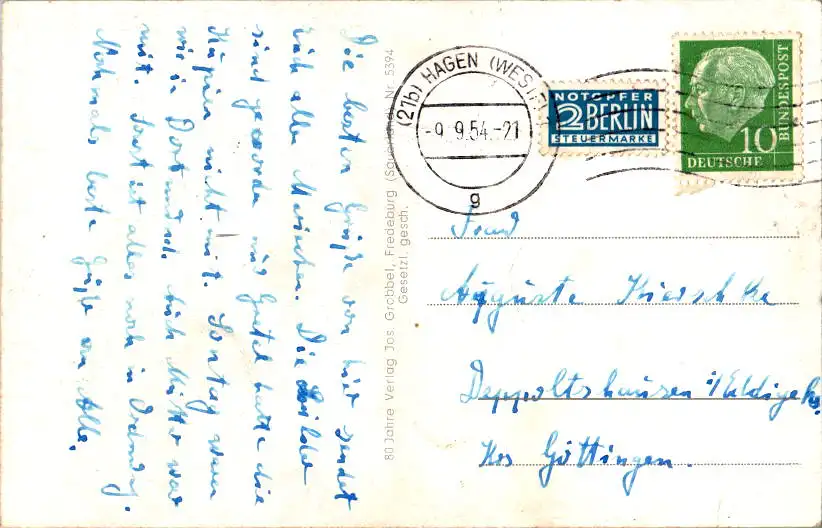 Die besten Grüße von hier sendet
Euch allen Mariechen. Die Bilder
sind geworden und Gretel hatte die
Kopien nicht mit. Sontag waren
wir in Dortmund. Mutter war
mit. Sonst ist alles noch in Ordnung.
Nochmals beste Grüße von Alle.
80 Jahre Verlag Jos. Grobbel, Fredeburg (Sauerland) Nr. 5394
Gesetzl. gesch.
(21b) HAGEN (WESTF)
-9. 9.54.-21
g
NOTOPFER
2 BERLIN
STEUERMARKE
10
DEUTSCHE
BUNDESPOST
Auguste Kierschke
Deppoltshausen
Krs Göttingen.